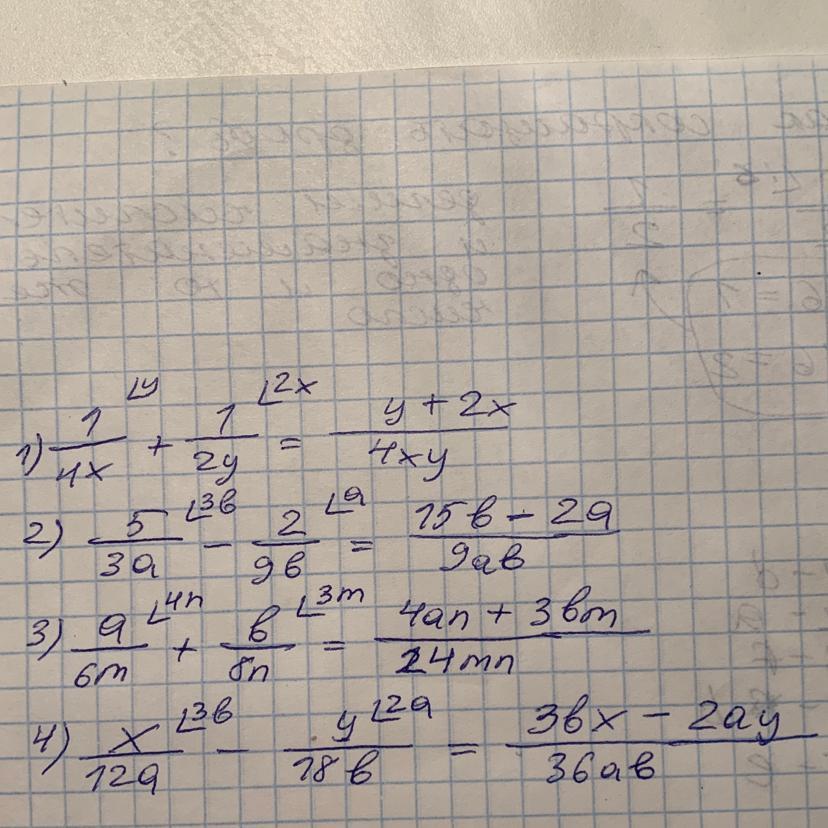 1) 1/4x ⌊y + 1/2y ⌊2x = y + 2x/4xy
2) 5/3a ⌊3в − 2/9в ⌊a = 15в − 2a/9aв
3) a/6m ⌊4n + в/8n ⌊3m = 4an + 3вm/24mn
4) x/12a ⌊3в − y/18в ⌊2a = 3вx − 2ay/36aв